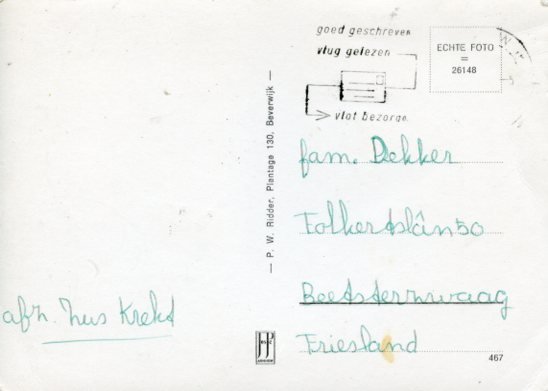 goed geschreven
vlug gelezen
vlot bezorgd
ECHTE FOTO
=
26148
— P. W. Ridder, Plantage 130, Beverwijk —
fam. Dekker
Folkertslân 50
Beetsterzwaag
Friesland
afz.
JP
467